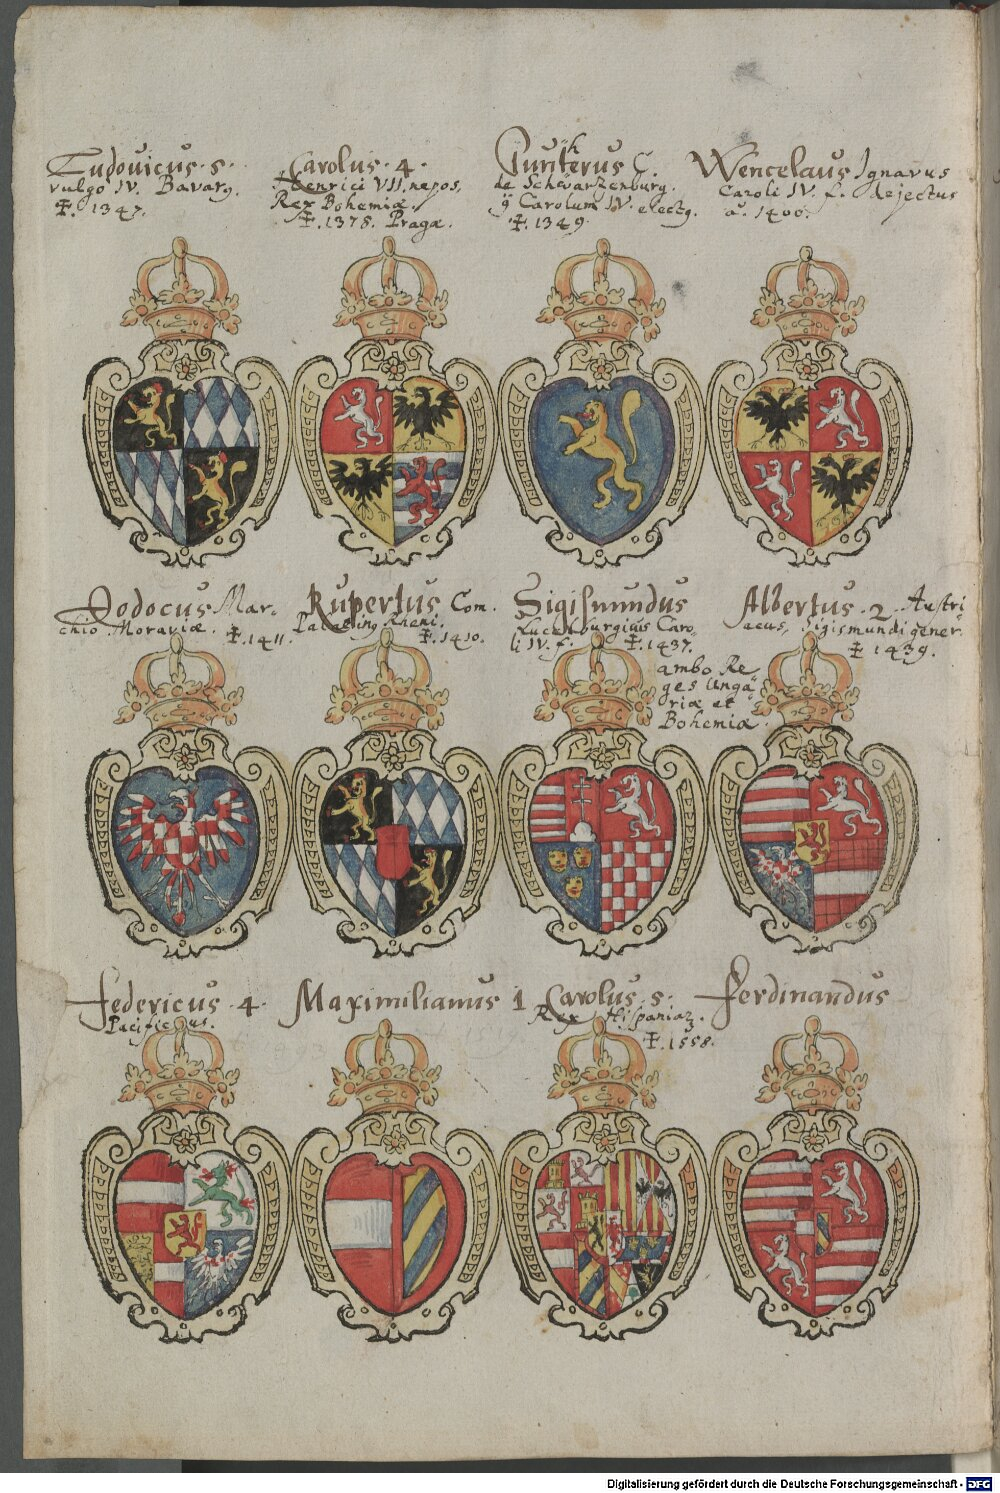 Ludovicus . 5 .
vulgo IV. Bavarg.
. 1347.
Carolus . 4 .
Henrici VII. nepos,
Rex Bohemiæ.
. 1378. Pragæ.
Guntherus C.
de Schwartzenburg.
Carolum IV. electg.
. 1349.
Wencelaus Ignavus
Caroli IV. f. dejectus
aº. 1400.
Jodocus Mar-
chio Moraviæ. . 1411.
Rupertus Com.
Palating Rheni.
. 1410.
Sigismundus
Lucenburgius Caro-
li IV. f. . 1437.
ambo Re-
ges Unga-
riæ et
Bohemiæ.
Albertus . 2 . Austri-
acus, Sigismundi gener.
1439.
Federicus . 4 .
Pacificus.
Maximilianus 1
Carolus . 5 .
Rex Hispaniaꝝ.
. 1558.
Ferdinandus
Digitalisierung gefördert durch die Deutsche Forschungsgemeinschaft - DFG